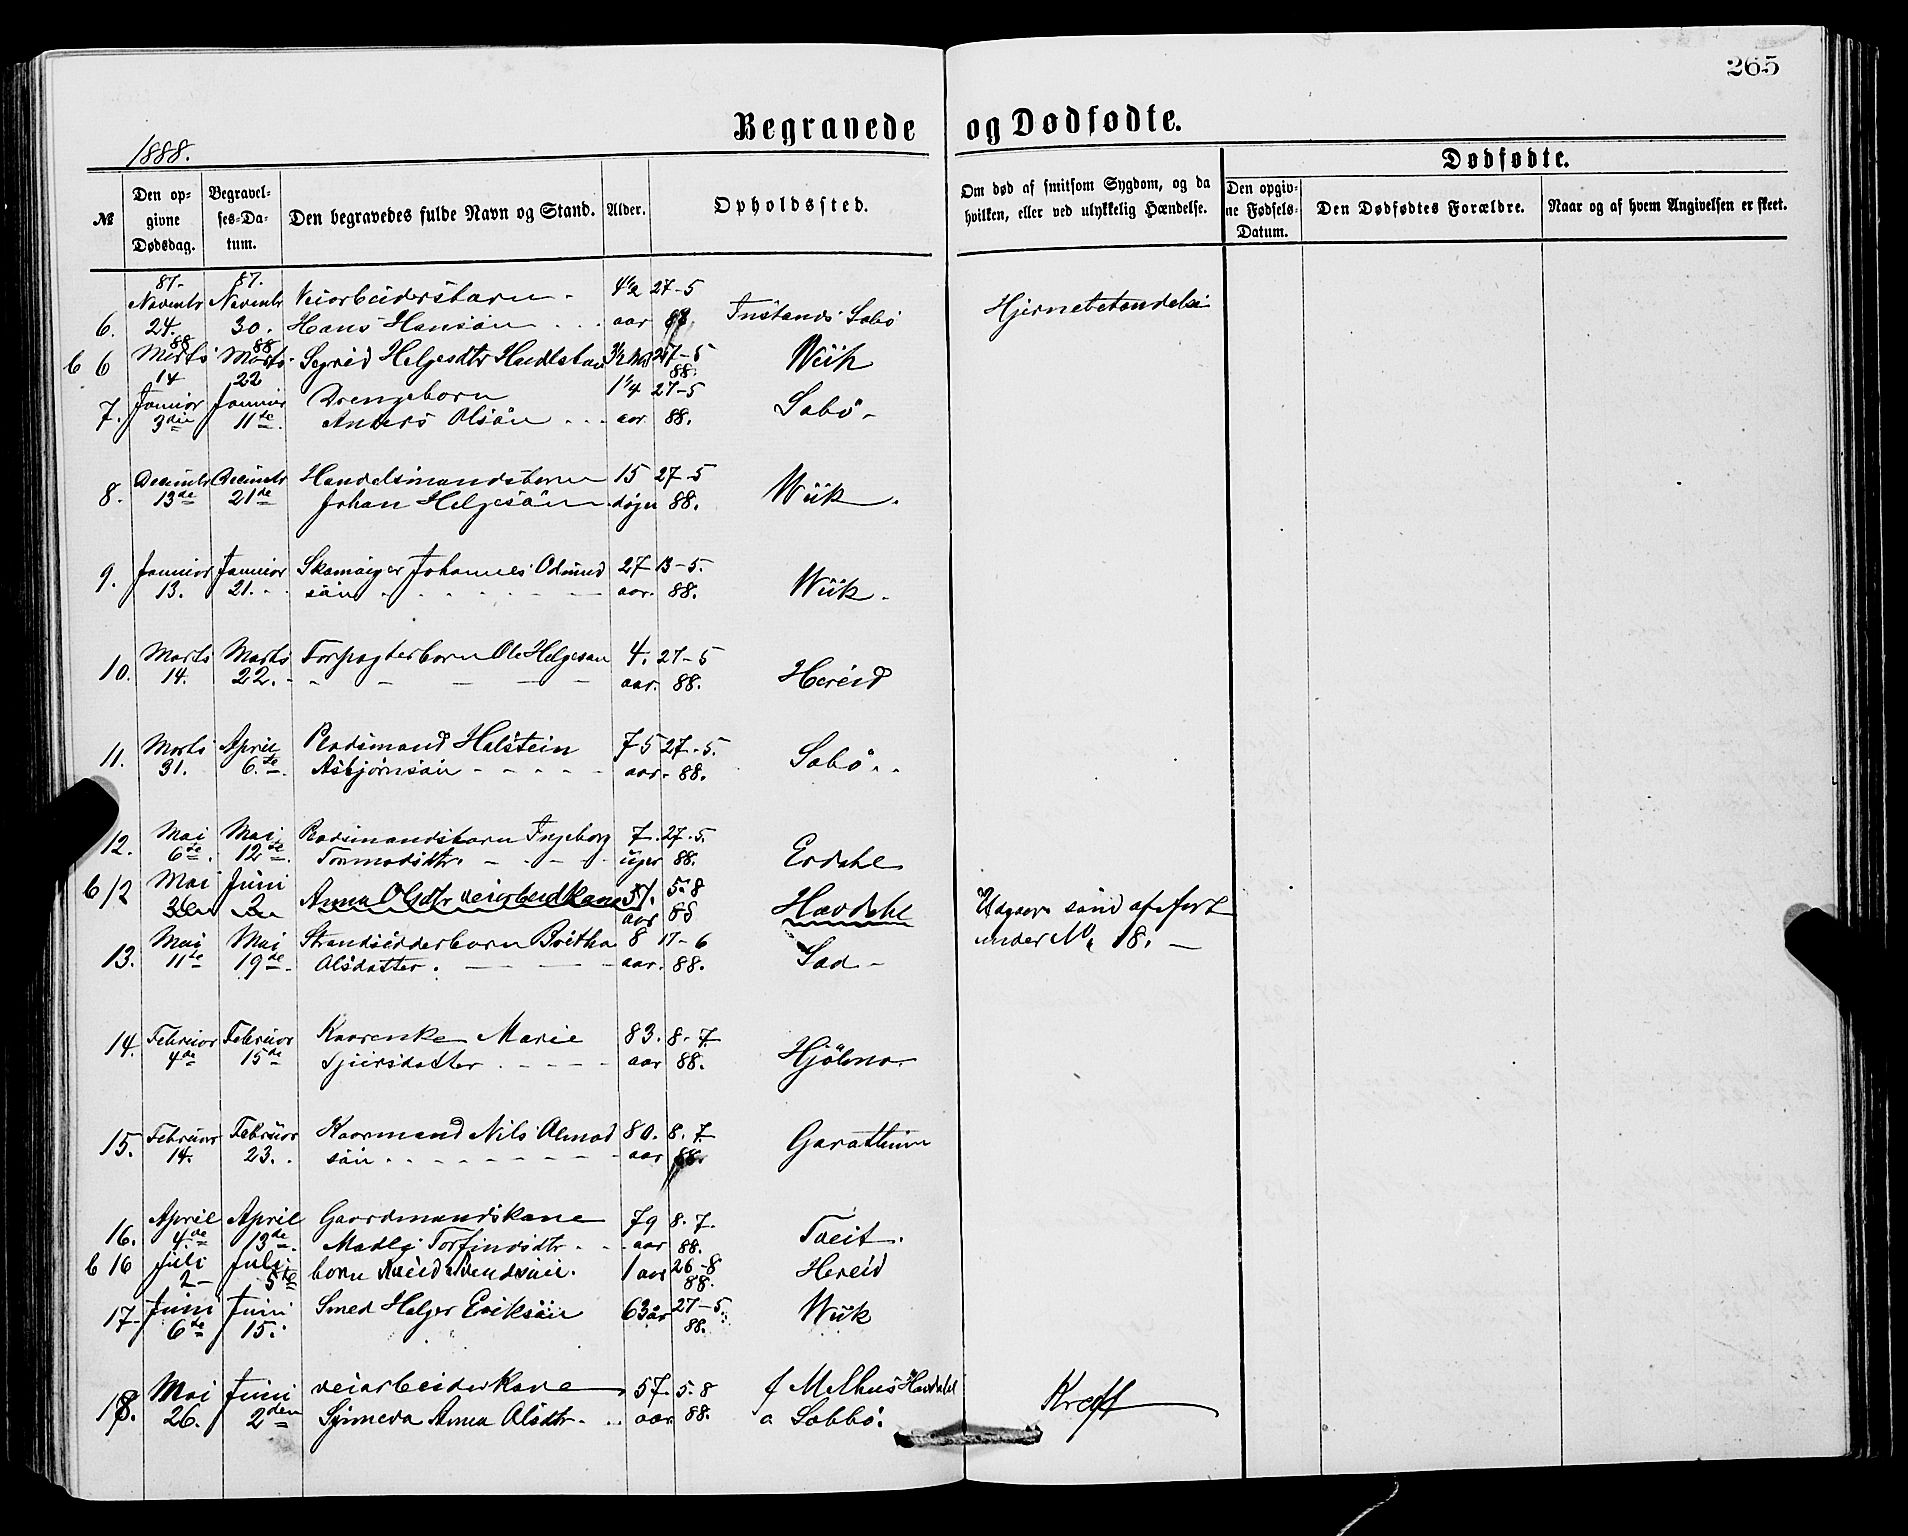 265
Begravede og Dødfødte.
1888.
Dødfødte.
№ Den op-givne Dødsdag. Begravel-ses-Da-tum. Den begravedes fulde Navn og Stand. Alder. Opholdssted. Om død af smitsom Sygdom, og da hvilken, eller ved ulykkelig Hændelse. Den opgiv-ne Fødsels-Datum. Den Dødfødtes Forældre. Naar og af hvem Angivelsen er skeet.
87. 87.
Novembr Novembr Veiarbeidersbarn 4½ 27-5
6. 24. 30. Hans Hansøn aar 88. Sabø Hjernebetændelse
88 88
b 6 Marts Marts Sigrid Helgesdtr 27-5 Wiik
14 22 88.
Januar Januar Drengebarn 1¼ 27-5
7. 3die 11te Anders Olsøn aar 88. Sabø
Decembr Decembr Handelsmandsbarn 15 27-5
8. 13de 21de Johan Helgesøn døgn 88. Wiik.
9. Januar Januar Johannes Odmund 27 13-5.
13. 21. søn aar. 88. Wiik.
Marts Marts Forpagterbarn Ole Helgesøn 4. 27-5
10. 14. 22. aar. 88. Hereid
11. Marts April Pladsmand Halstein 75 27-5.
31. 6te Asbjørnsøn aar. 88. Sabø
12. Mai Mai Pladsmandsbarn Ingeborg 7 27-5.
6te 12te Tormodsdtr. uger 88. Erdahl
b 12 Mai Juni Anna Olsdtr veiarbeidkane 57. 5-8
aar 88 Havdahl Udgaar saasom anført
13. Mai Mai Strandsidderbarn Britha 8 17-6 under No 18.
11te 19de Olsdatter. aar. 88. Sæd
14. Februar Februar Kaarenke Marie 83. 8-7
4de 15de Sjursdatter aar 88. Hjølmo
15. Februar Februar Kaarmand Nils Amod 80. 8-7.
14. 23. søn aar 88. Garathun
16. April April Gaardmandskone 79 8-7.
4de 13de Madli Torfindsdtr. aar 88. Tveit.
b 16 Juli Juli barn Svendsøn. 1 aar 26-8 Hereid
2 5te 88.
17. Juni Juni Smed Helge Eriksøn 63 år 27-5 Wiik
6te 15. 88.
18. Mai Juni veiarbeiderkone 57. 5-8 f Melhus Havdahl
26. 2den Synneva Anna Olsdtr. aar 88. a Sabbø. Kræft